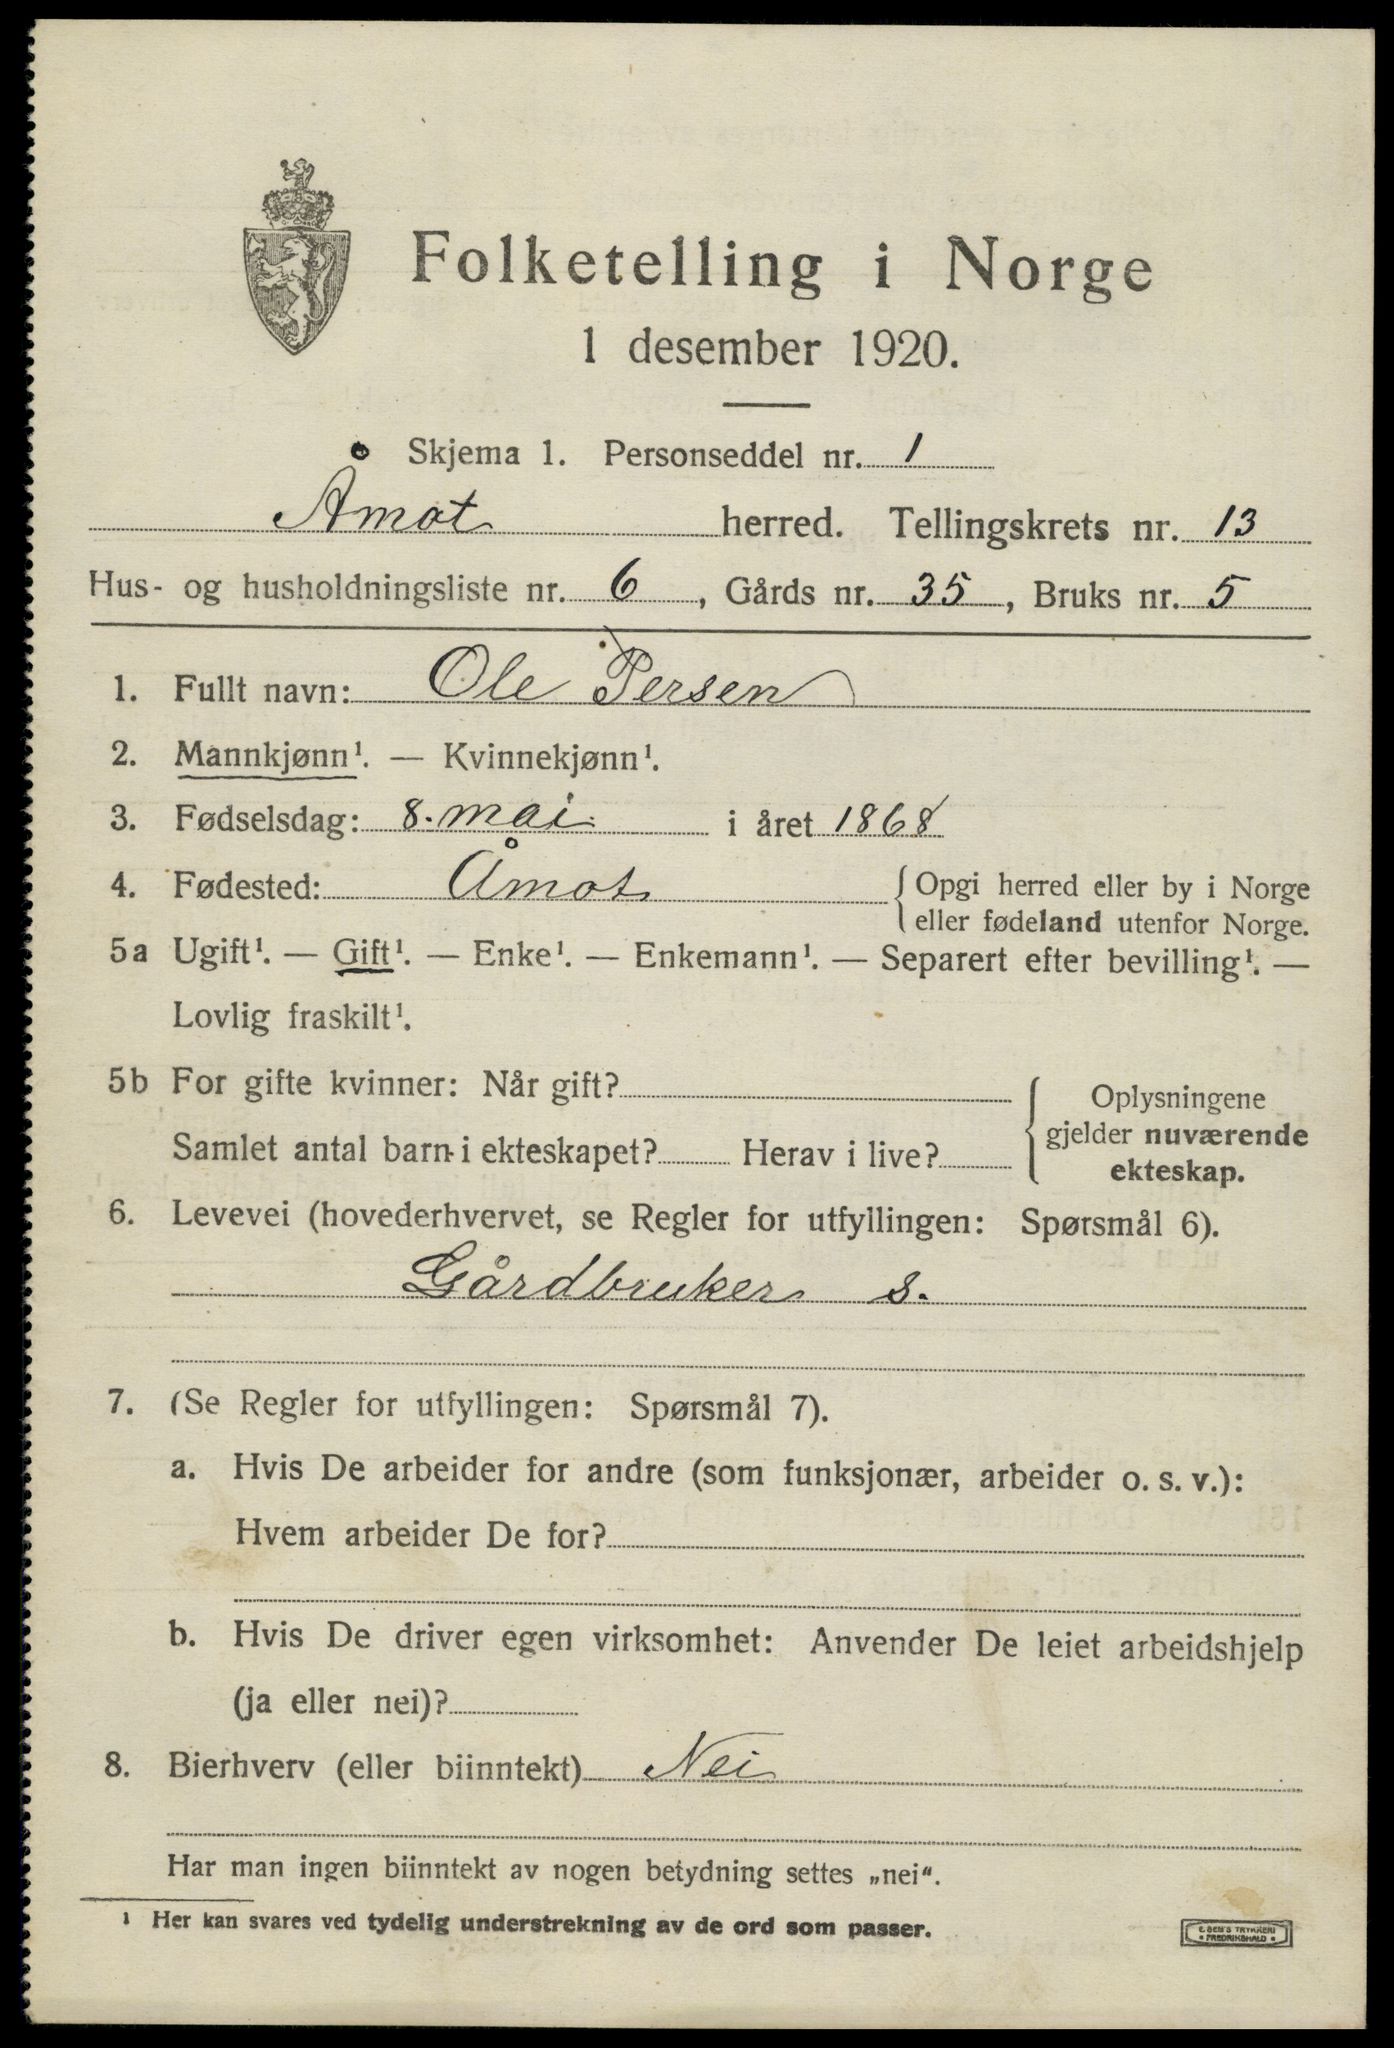 Folketelling i Norge
1 desember 1920.
Skjema 1. Personseddel nr. 1
Åmot herred. Tellingskrets nr. 13
Hus- og husholdningsliste nr. 6, Gårds nr. 35, Bruks nr. 5
1. Fullt navn: Ole Persen
2. Mannkjønn¹. — Kvinnekjønn¹.
3. Fødselsdag: 8. mai i året 1868
4. Fødested: Åmot {Opgi herred eller by i Norge
eller fødeland utenfor Norge.
5a Ugift¹. — Gift¹. — Enke¹. — Enkemann¹. — Separert efter bevilling¹. —
Lovlig fraskilt¹.
5b For gifte kvinner: Når gift?
Samlet antal barn i ekteskapet? Herav i live?
Oplysningene
gjelder nuværende
ekteskap.
6. Levevei (hovederhvervet, se Regler for utfyllingen: Spørsmål 6).
Gårdbruker s.
7. (Se Regler for utfyllingen: Spørsmål 7).
a. Hvis De arbeider for andre (som funksjonær, arbeider o. s. v.):
Hvem arbeider De for?
b. Hvis De driver egen virksomhet: Anvender De leiet arbeidshjelp
(ja eller nei)?
8. Bierhverv (eller biinntekt) Nei
Har man ingen biinntekt av nogen betydning settes „nei“.
¹ Her kan svares ved tydelig understrekning av de ord som passer.
E. SEM'S TRYKKERI
• FREDRIKSHALD •